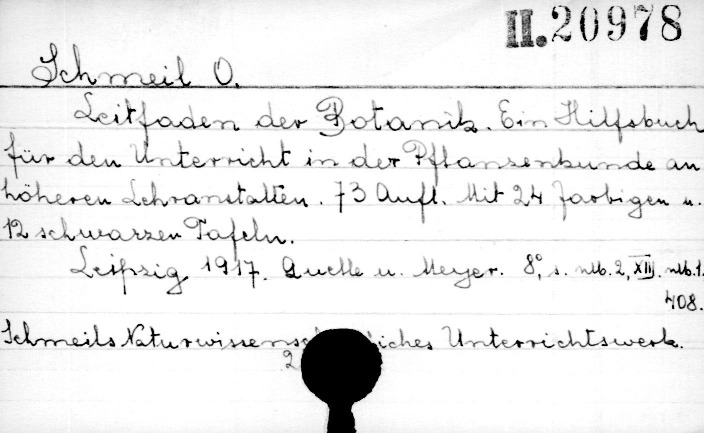 II.20978
Schmeil O.
Leitfaden der Botanik. Ein Hilfsbuch
für den Unterricht in der Pflanzenkunde an
höheren Lehranstalten. 73 Aufl. Mit 24 farbigen u.
12 schwarzen Tafeln.
Leipzig 1917. Quelle u. Meyer. 8°, s. nlb. 2, XII, nlb. 1.
408.
Schmeils Naturwissens liches Unterrichtswerk.
2